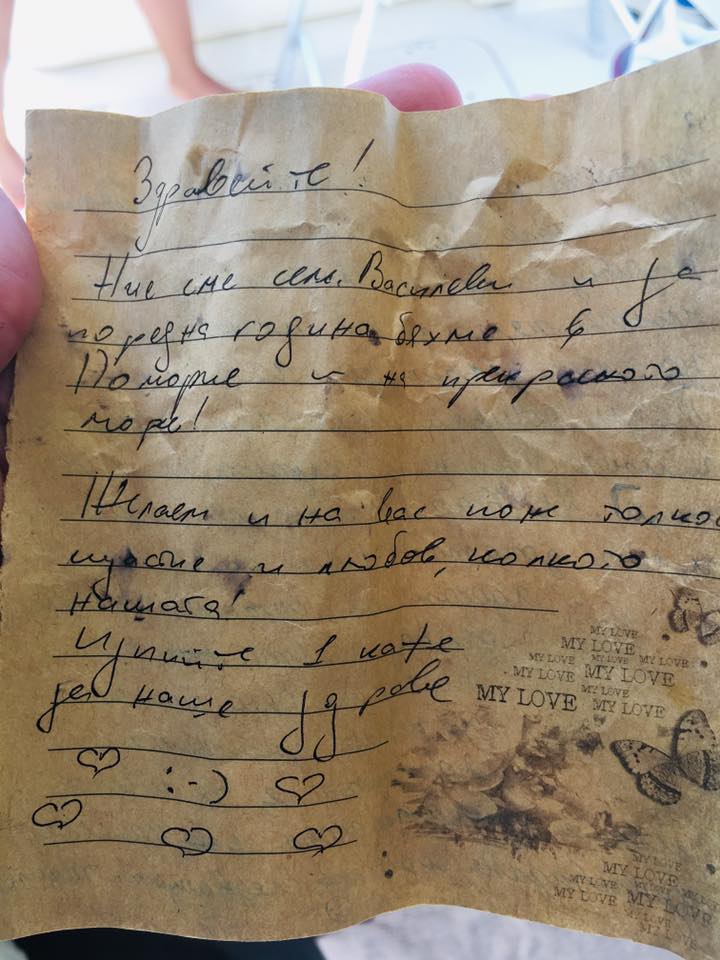 Здравейте!
Ние сме сем. Василеви и за
поредна година бяхме в
Поморие и на прекрасното
море!
Желаем и на вас поне толкова
щастие и любов, колкото
нашата!
Изпийте 1 кафе
за наше здраве
:-)
MY LOVE
MY LOVE
MY LOVE MY LOVE MY LOVE
MY LOVE MY LOVE
MY LOVE MY LOVE
MY LOVE MY LOVE
MY LOVE
MY LOVE
MY LOVE MY LOVE
MY LOVE MY LOVE
MY LOVE
MY LOVE